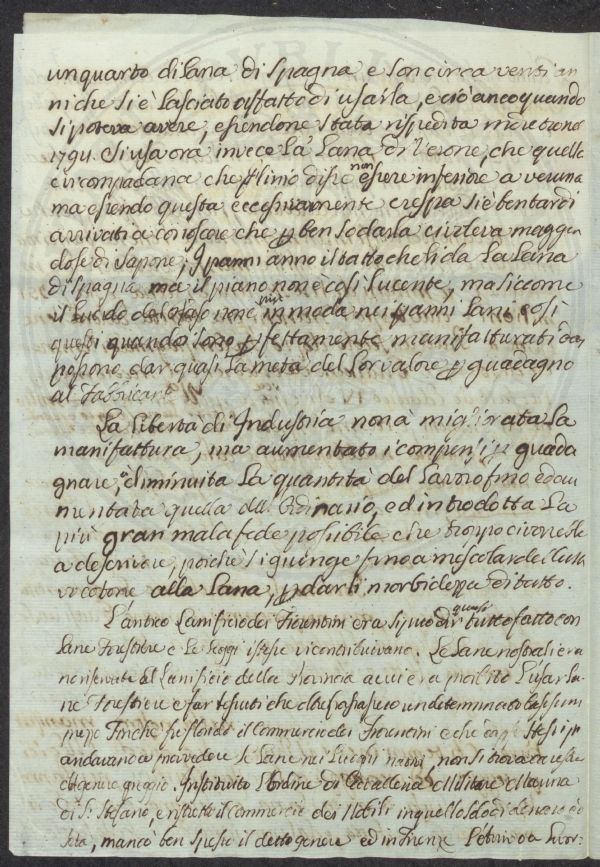 un quarto di Lana di Spagna e son circa venti an
ni che si è lasciato affatto di usarla, e ciò anco quando
si poteva avere, essendone stata rispedita
1794. Si usa ora invece La Lana di Verone, che quella
circompadana che Plinio disse non essere inferiore a veruna
ma essendo questa eccessivamente crespa si è ben tardi
arrivati a conoscere che p ben sodarla ci voleva maggior
dose di sapone; I panni anno il tatto che li da La Lana
di Spagna ma il piano non è così Lucente, ma siccome
il Lucido del raso non è più in moda nei panni Lani così
questi quando sono pfettamente manifatturati
possono dar quasi La metà del Lor valore p guadagno
al Fabbricante
La Libertà di Industria non à migliorata La
manifattura, ma aumentato i compensi p guada
gnare, e diminuita La quantità del Lavoro fino ed au
mentata quella dell Ordinario, ed introdotta La
più gran mala fede possibile che troppo ci vorrebbe
a descrivere, poichè si giunge fino a mescolarle
cotone alla Lana, p darli morbidezza di tatto.
L'antico Lanificio dei Fiorentini era si può dir quasi tutto fatto con
Lane Forestiere e Le Leggi istesse vi contribuivano. Le Lane nostrali eran
no riservate al Lanificio della Provincia a cui era proibito L'usar La
ne Forestiere e far tessuti che oltrepassassero un determinato bassissimo
prezzo Finchè fu florido il Commercio dei Fiorentini e che essi stessi
andavano a provvedere Le Lane nei Luoghi nativi, non si trovava
genere greggio. Instituito L'Ordine di Cavalleria Militare Marina
di S. Stefano, e ristretto il Commercio dei Nobili in quello solo di
Seta, mancò ben spesso il detto genere ed in Firenze